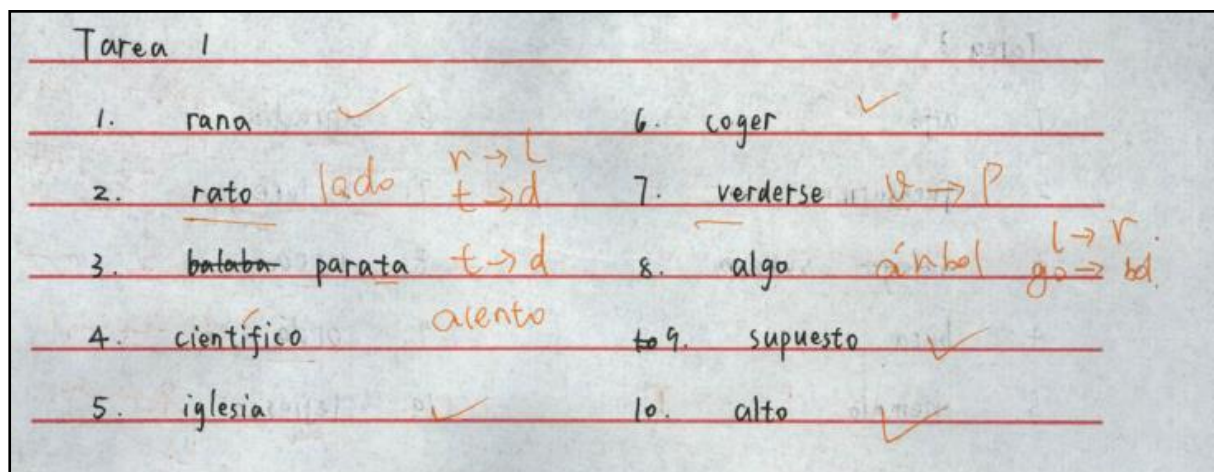 Tarea 1
1. rana ✓
2. rato lado r → l t → d
3. balaba parata t → d
4. científico acento
5. iglesia ✓
6. coger ✓
7. verderse v → p
8. algo árbol l → r. go → bol.
to 9. supuesto ✓
10. alto ✓